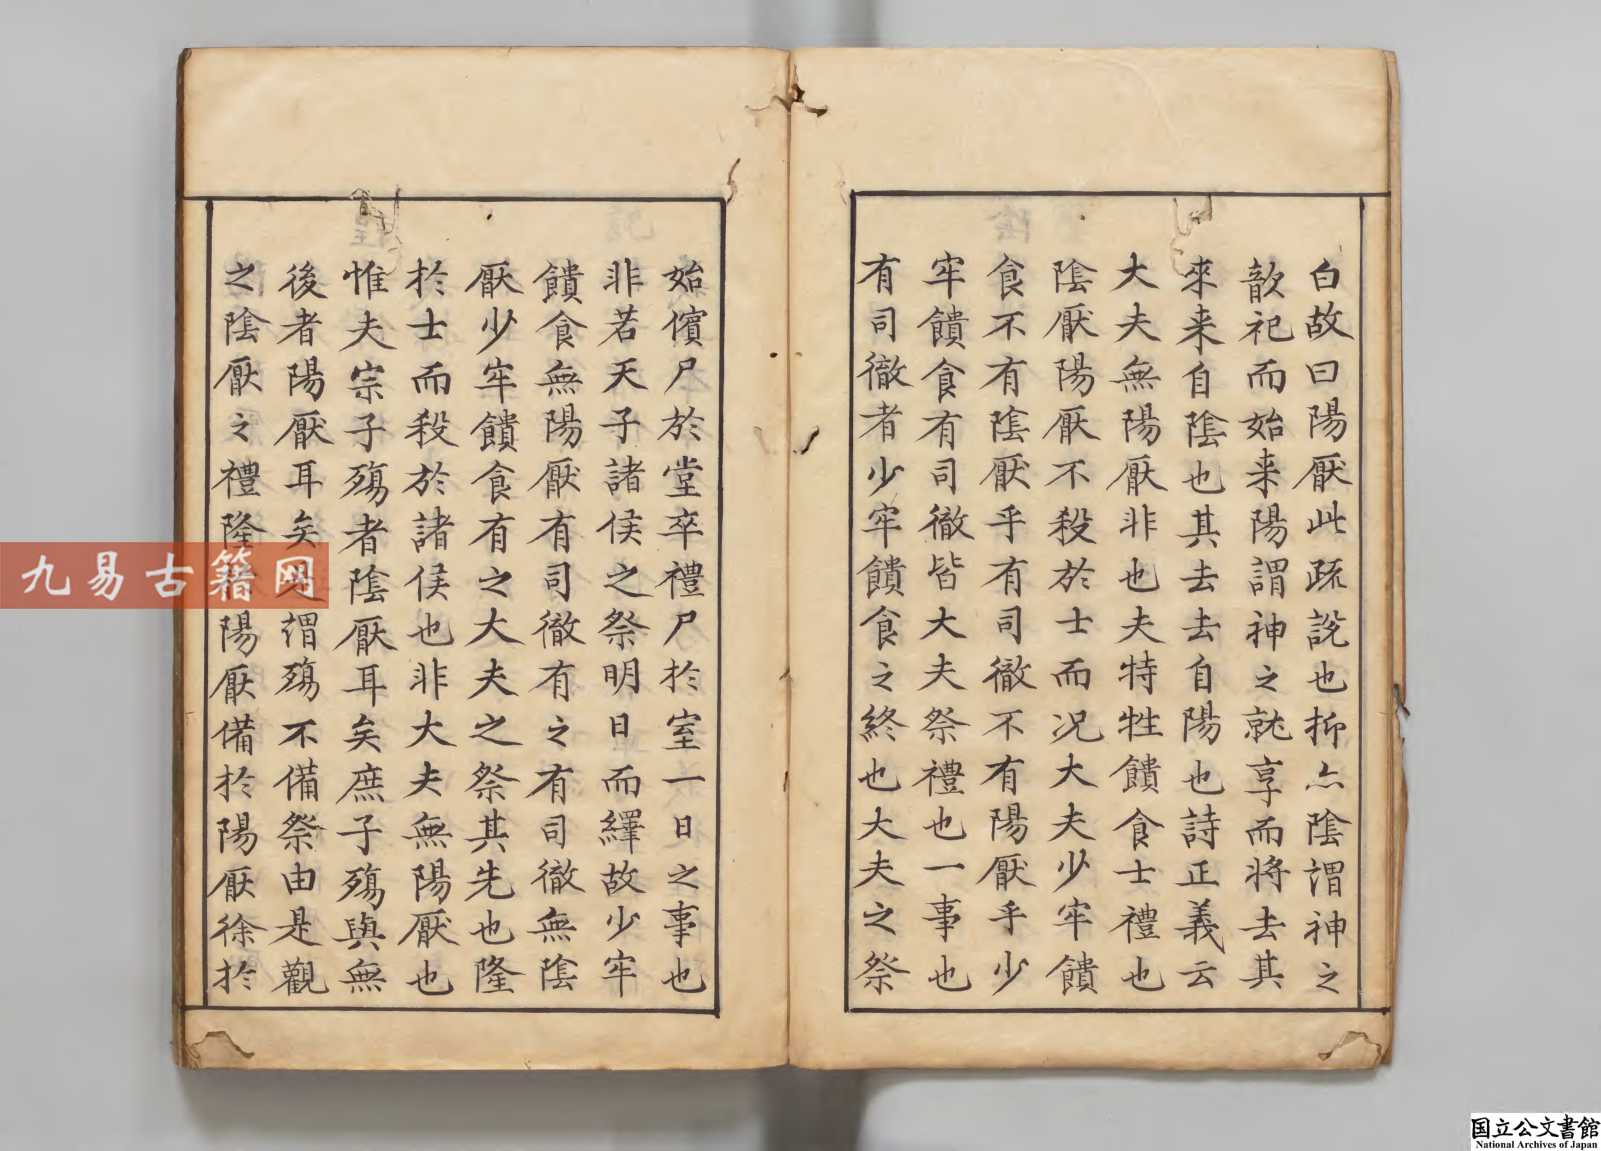 白故曰陽厭此疏說也抑亦陰謂神之
歆祀而始来陽謂神之就享而将去其
來来自陰也其去去自陽也詩正義云
大夫無陽厭非也夫特牲饋食士禮也
陰厭陽厭不殺於士而况大夫少牢饋
食不有陰厭乎有司徹不有陽厭乎少
牢饋食有司徹皆大夫祭禮也一事也
有司徹者少牢饋食之終也大夫之祭
始儐尸於堂卒禮尸於室一日之事也
非若天子諸侯之祭明日而繹故少牢
饋食無陽厭有司徹有之有司徹無陰
厭少牢饋食有之大夫之祭其先也隆
於士而殺於諸侯也非大夫無陽厭也
惟夫宗子殤者陰厭耳矣庶子殤與無
後者陽厭耳矣是謂殤不備祭由是觀
之陰厭之禮隆於陽厭備於陽厭徐於
九易古籍网
国立公文書館
National Archives of Japan